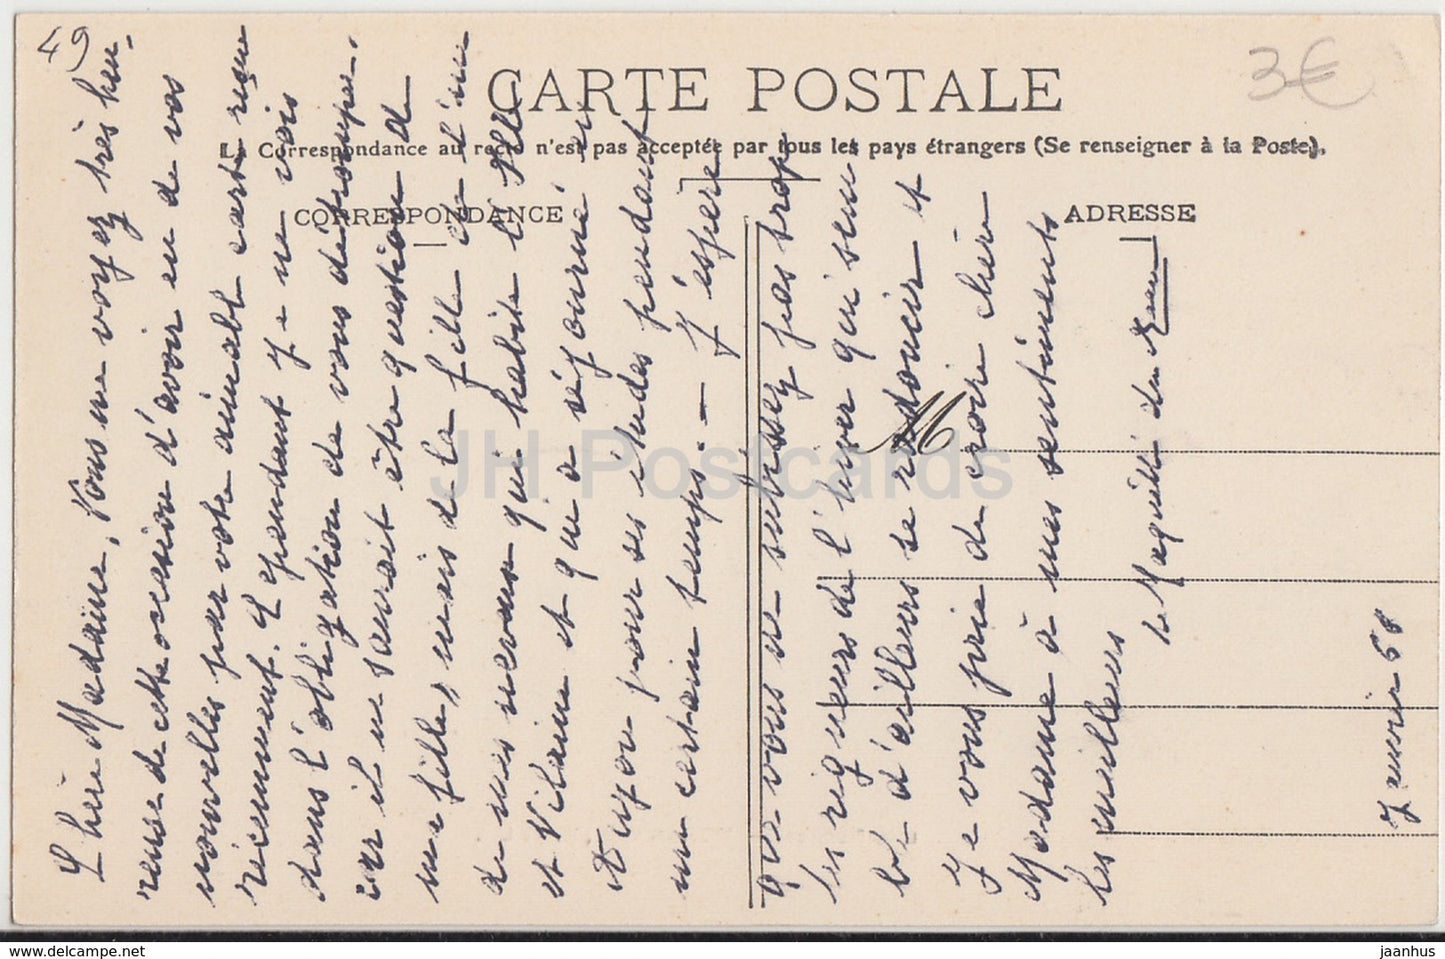 49
3€
CARTE POSTALE
La Correspondance au recto n'est pas acceptée par tous les pays étrangers (Se renseigner à la Poste).
CORRESPONDANCE
ADRESSE
M
Chère Madame, Vous me voyez très heu-
reuse de cette occasion d'avoir eu de vos
nouvelles par votre aimable carte reçue
récemment. Cependant je me vois
dans l'obligation de vous détromper.
car il ne saurait être question de
ma fille, mais de la fille de l'un
de mes neveux qui habite l'Ille
et Vilaine et qui a séjourné en
pour ses études pendant
un certain temps. — J'espère
que vous ne subissez pas trop
les rigueurs de l'hiver qui semble
d'ailleurs se radoucir et
Je vous prie de croire chère
Madame à mes sentiments
les meilleurs
Janvier
JH Postcards
delcampe.net
jaanhus